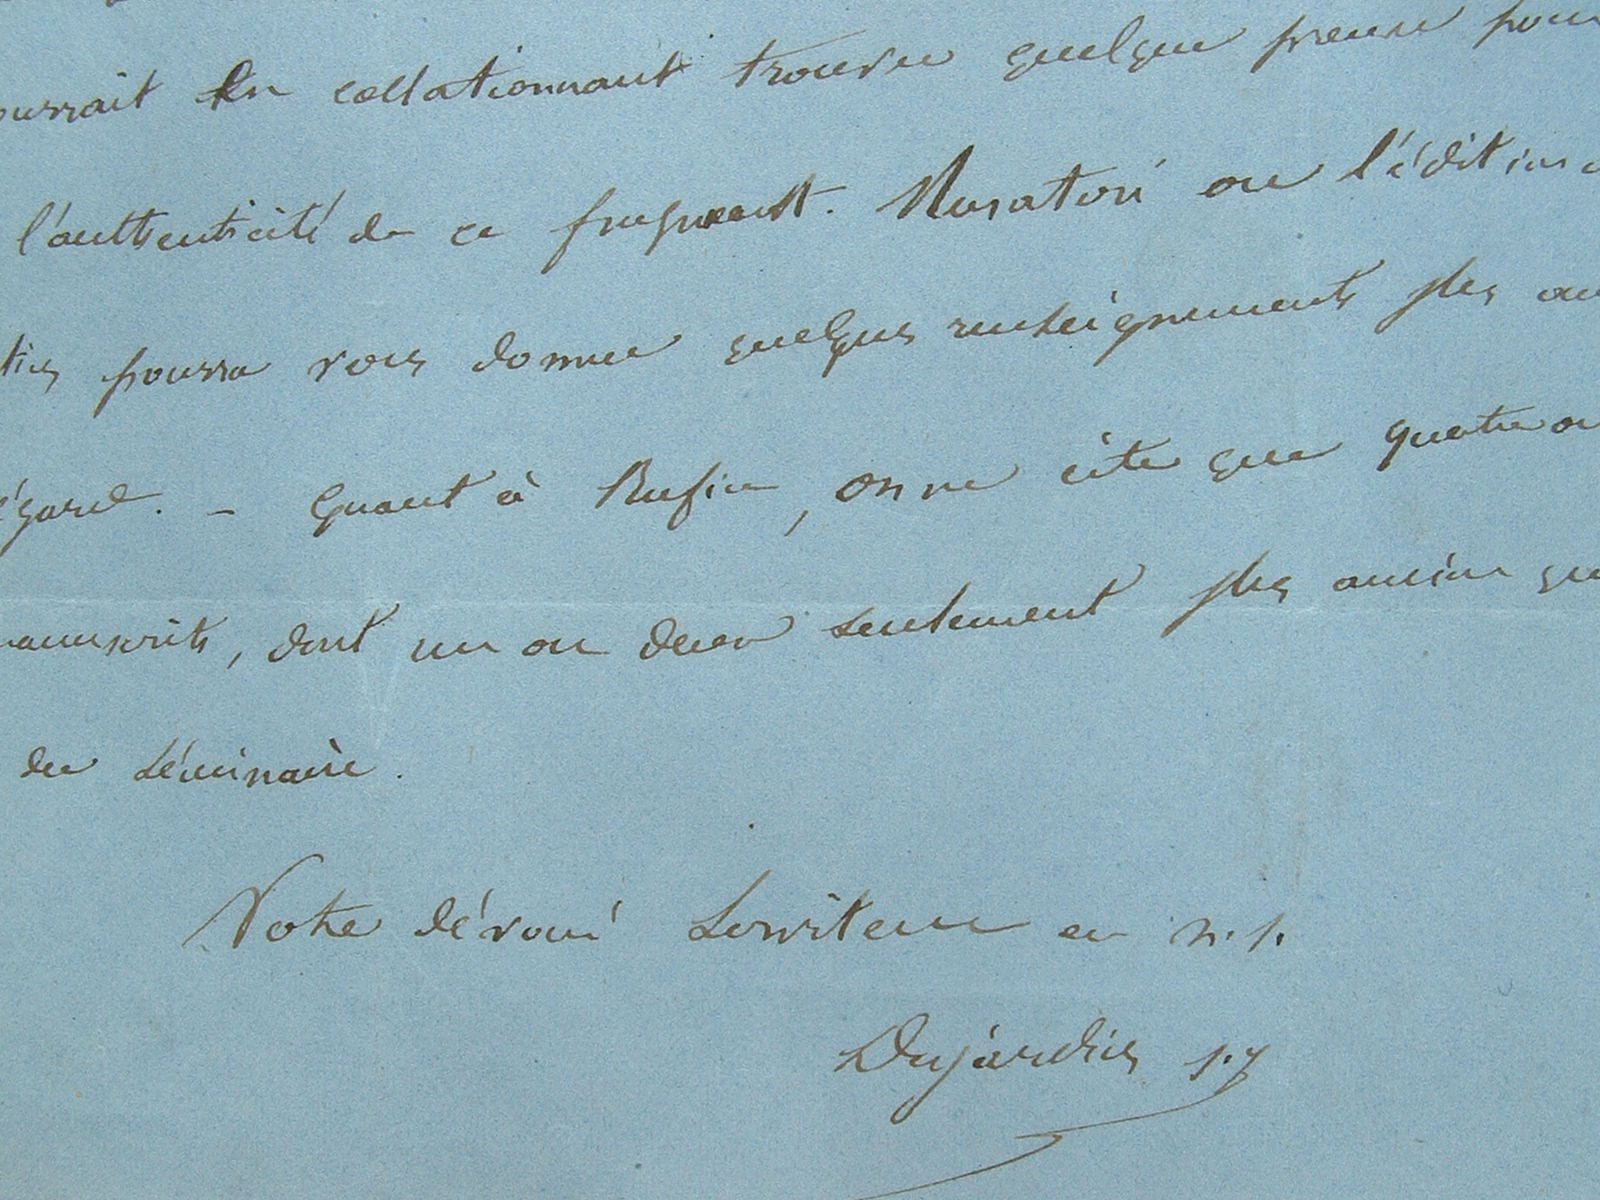 ourrait en collationnant trouver quelque preuve pour
l'authenticité de ce fragment. Muratori ou l'édition
pourra vous donner quelques renseignements plus
égard. — Quant à Rufin, on ne cite que quatre o
manuscrits, dont un ou deux seulement plus anciens qu
du séminaire.
Votre dévoué serviteur en n.s.
Dujardin s.j